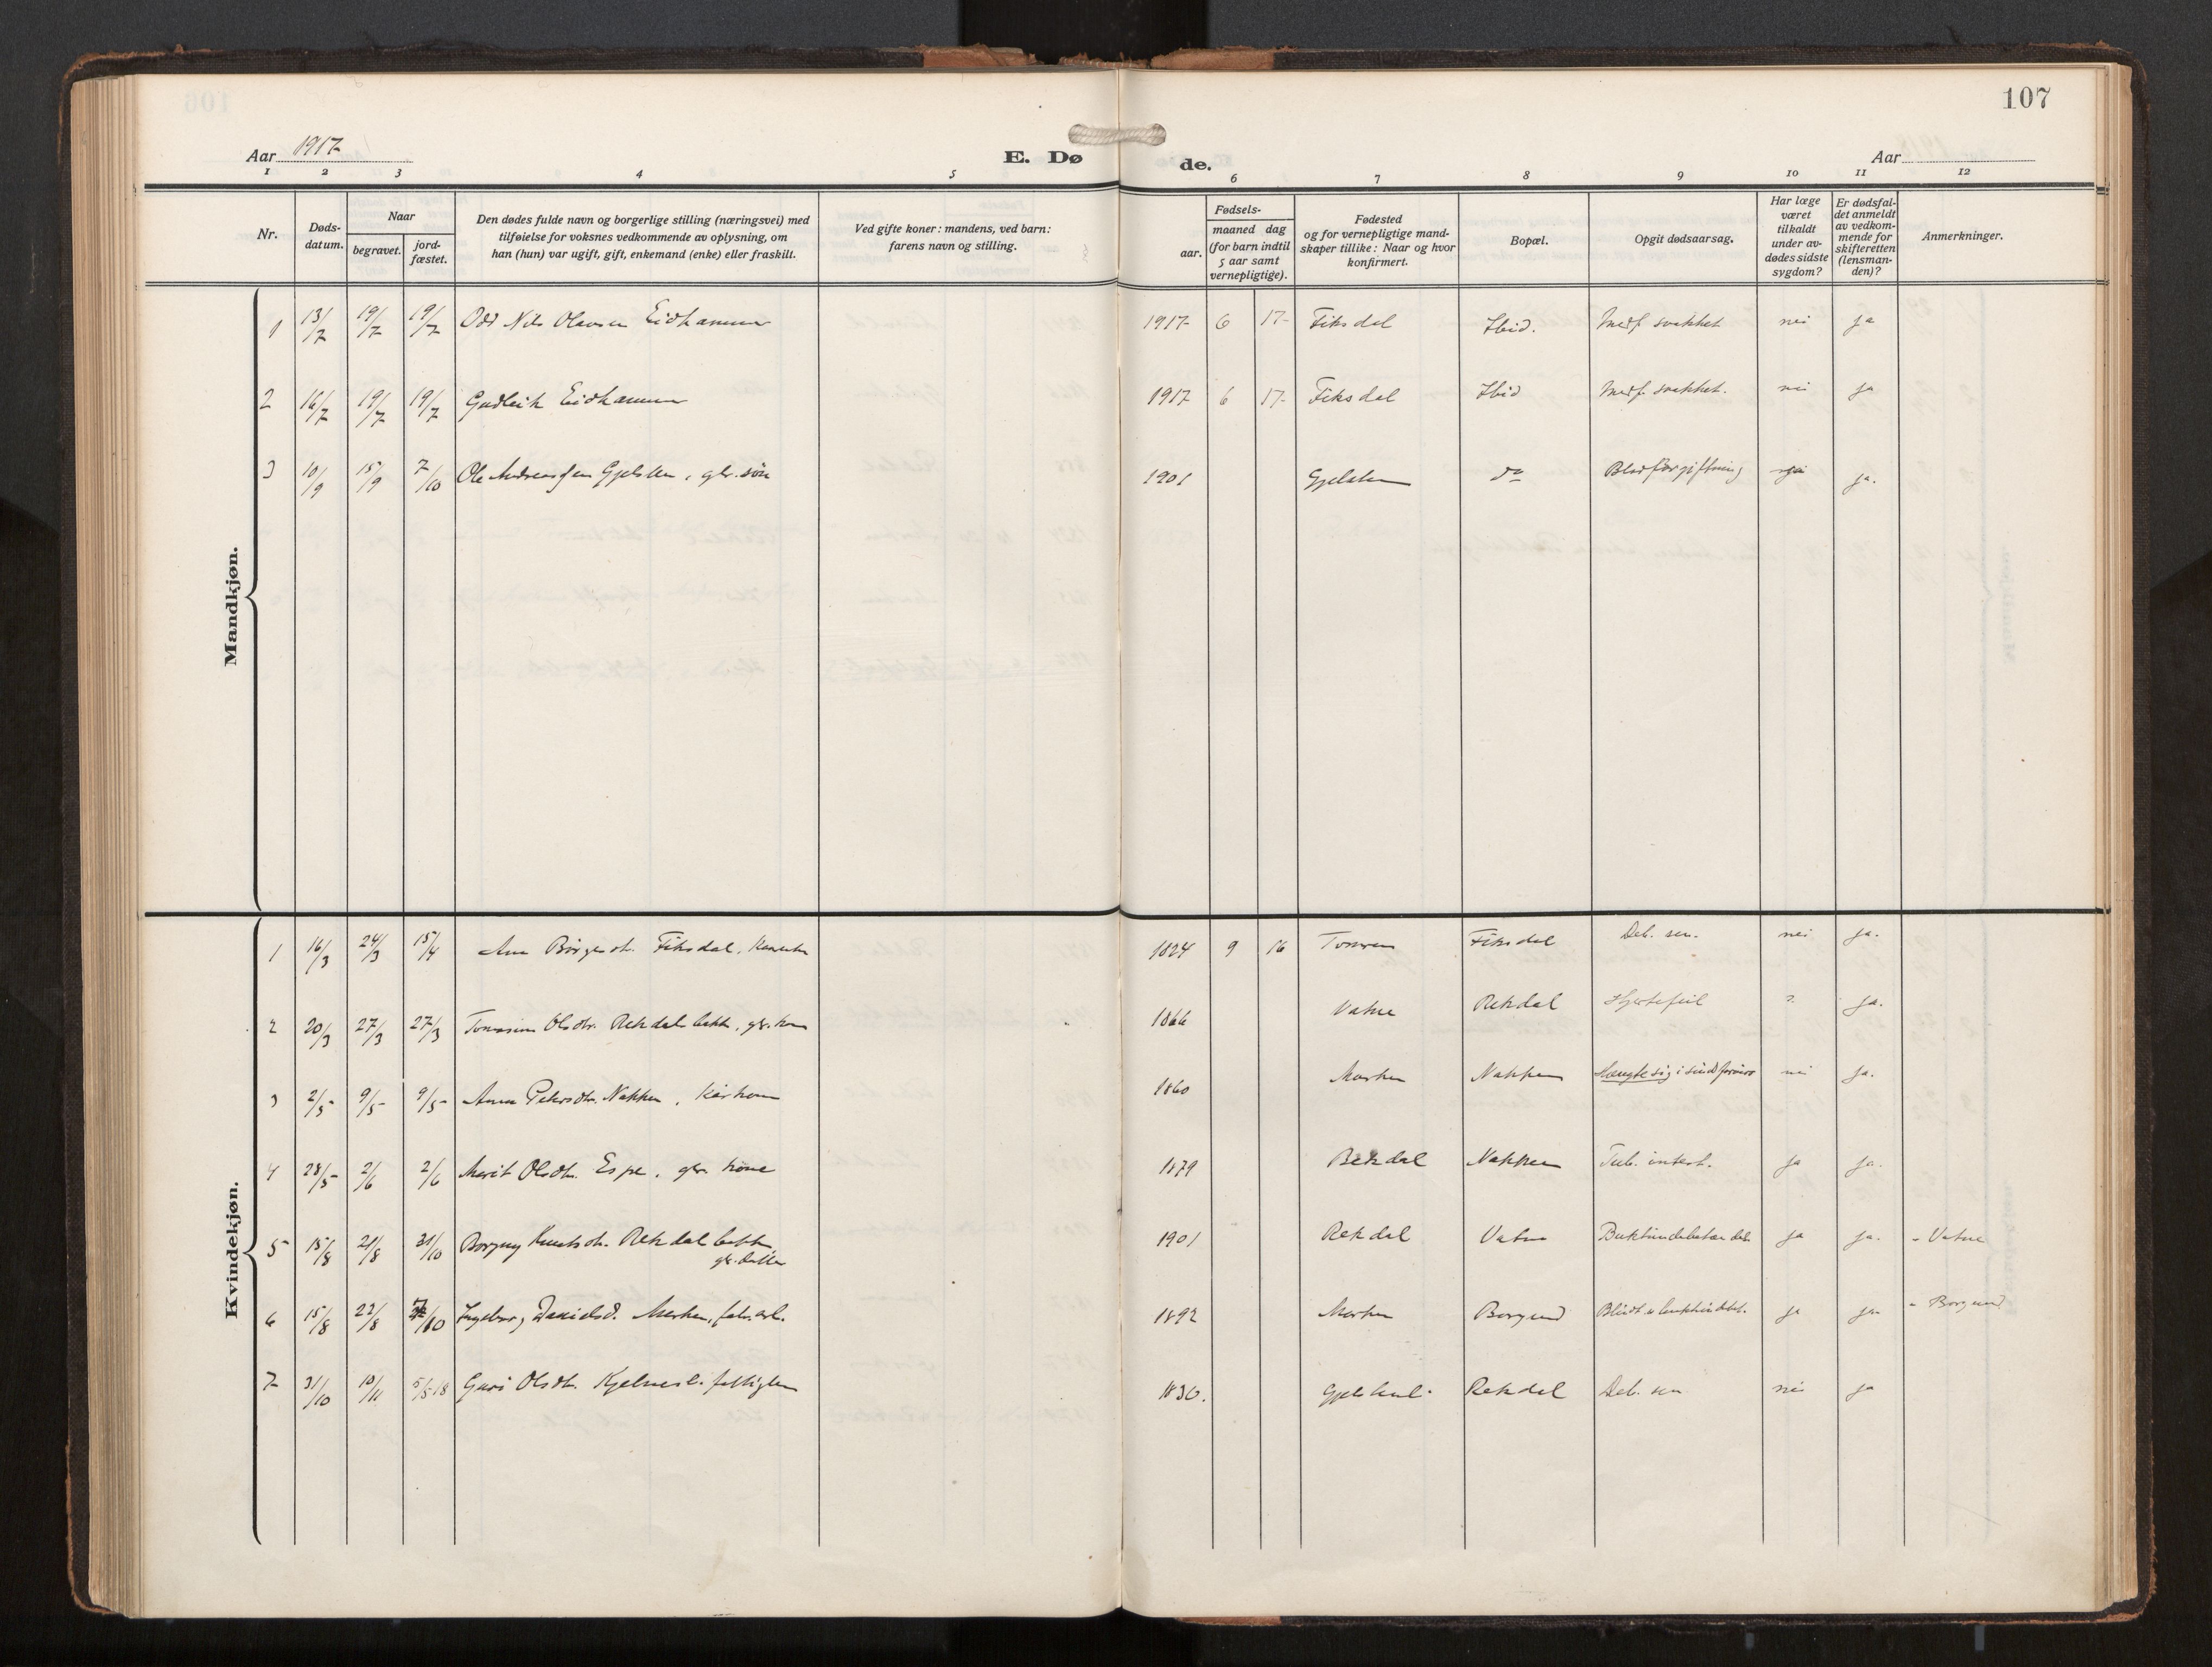 107
Aar 1917
E. Døde.
Aar
1 2 3 4 5 6 7 8 9 10 11 12
Nr.
Døds-datum.
Naar
begravet.
jord-fæstet.
Den dødes fulde navn og borgerlige stilling (næringsvei) med
tilføielse for voksnes vedkommende av oplysning, om
han (hun) var ugift, gift, enkemand (enke) eller fraskilt.
Ved gifte koner: mandens, ved barn:
farens navn og stilling.
Fødsels-
aar.
maaned dag
(for barn indtil
5 aar samt
vernepligtige).
Fødested
og for vernepligtige mand-
skaper tillike: Naar og hvor
konfirmert.
Bopæl.
Opgit dødsaarsag.
Har læge
været
tilkaldt
under av-
dødes sidste
sygdom?
Er dødsfal-
det anmeldt
av vedkom-
mende for
skifteretten
(lensman-
den)?
Anmerkninger.
Mandkjøn.
1 13/7 19/7 19/7 Odd Nils Olavsen Eidhammer 1917 6 17 Fiksdal Ibid. Medf. svakhet nei ja
2 16/7 19/7 19/7 Gudleik Eidhammer 1917 6 17 Fiksdal Ibid Medf. svakhet. nei ja
3 10/9 15/9 7/10 Ole Andreassen Gjelsten, gbr. søn 1901 Gjelsten do Blodforgiftning ja.
Kvindekjøn.
1 16/3 24/3 15/4 Ane Børgesdt. Fiksdal, 1824 9 16 Fiksdal Deb. sen. nei ja.
2 20/3 27/3 27/3 Olsdtr. Rekdalsbakk, gbr. kone 1866 Vatne Rekdal Hjertefeil ? ja.
3 2/5 9/5 9/5 Anna Petersdtr. Nakken, kårkone 1860 Morken Nakken Hængte sig i nei ja.
4 28/5 2/6 2/6 Marit Olsdtr. Espe, gbr. kone 1879 Rekdal Nakken Tub. intest. ja ja.
5 15/8 21/8 31/10 Borgny Knutsdt. Rekdalbakk,
gbr. datter 1901 Rekdal Vatne ja ja. - Vatne
6 15/8 22/8 /10 Ingeborg Danielsd. Morken, fabr. arb. 1892 Morken Borgund ja ja - Borgund
7 31/10 10/11 5/5 18 Guri Olsdtr. Kjelnesli fattiglem 1830. Rekdal Deb. sen nei ja